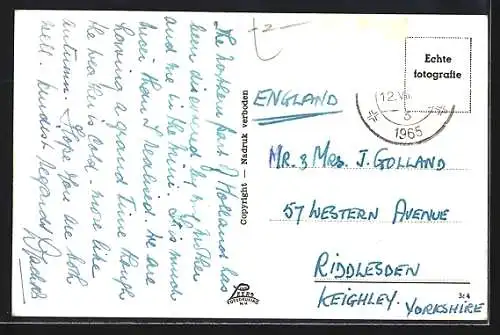 The Northern part of Holland has
been discovered by my mother
and me in the mini. It is much
nicer than I realised. We are
having a grand time though
the weather is cold - more like
autumn. Hope you are both
well. Kindest regards
Copyright — Nadruk verboden
Echte
fotografie
12.VIII
1965
ENGLAND
MR. & MRS. J. GOLLAND
57 WESTERN AVENUE
RIDDLESDEN
KEIGHLEY.
YORKSHIRE
364